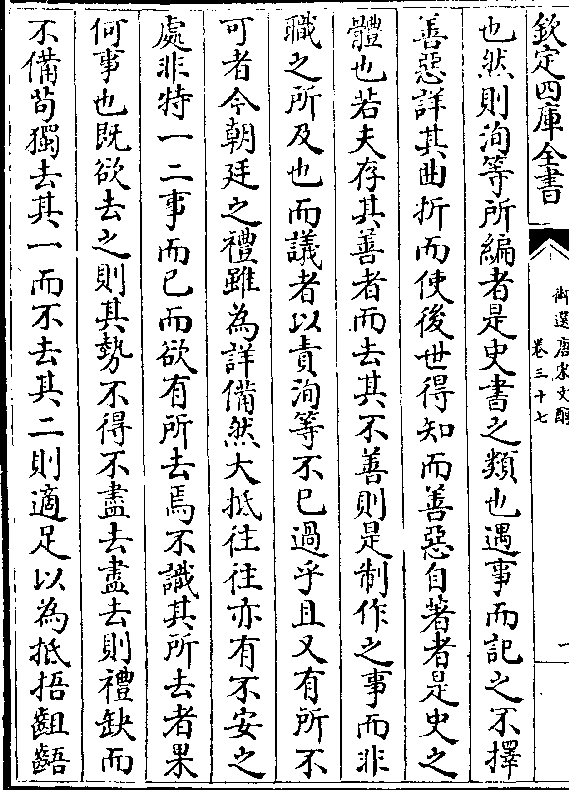 欽定四庫全書
御選唐宋文醇
卷三十七
一
也然則洵等所編者是史書之類也遇事而記之不擇
善惡詳其曲折而使後世得知而善惡自著者是史之
體也若夫存其善者而去其不善則是制作之事而非
職之所及也而議者以責洵等不已過乎且又有所不
可者今朝廷之禮雖為詳備然大抵往往亦有不安之
處非特一二事而已而欲有所去焉不識其所去者果
何事也既欲去之則其勢不得不盡去盡去則禮缺而
不備苟獨去其一而不去其二則適足以為抵捂齟齬